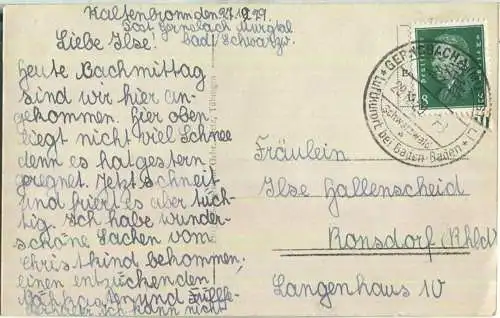 Kaltenbronn den 27.12.29
Post Gernsbach Murgtal
bad. Schwarzw.
Liebe Ilse!
Heute Nachmittag
sind wir hier an-
gekommen. Hier oben
liegt nicht viel Schnee
denn es hat gestern
geregnet. Jetzt schneit
und friert es aber tüch-
tig. Ich habe wunder-
schöne Sachen vom
Christkind bekommen.
einen entzückenden
und
Ich kann nicht
GERNSBACH
Luftkurort bei Baden-Baden
Schwarzwald
8
Tübingen
Fräulein
Ilse Hallenscheid
Ronsdorf (Rhld)
Langenhaus 10